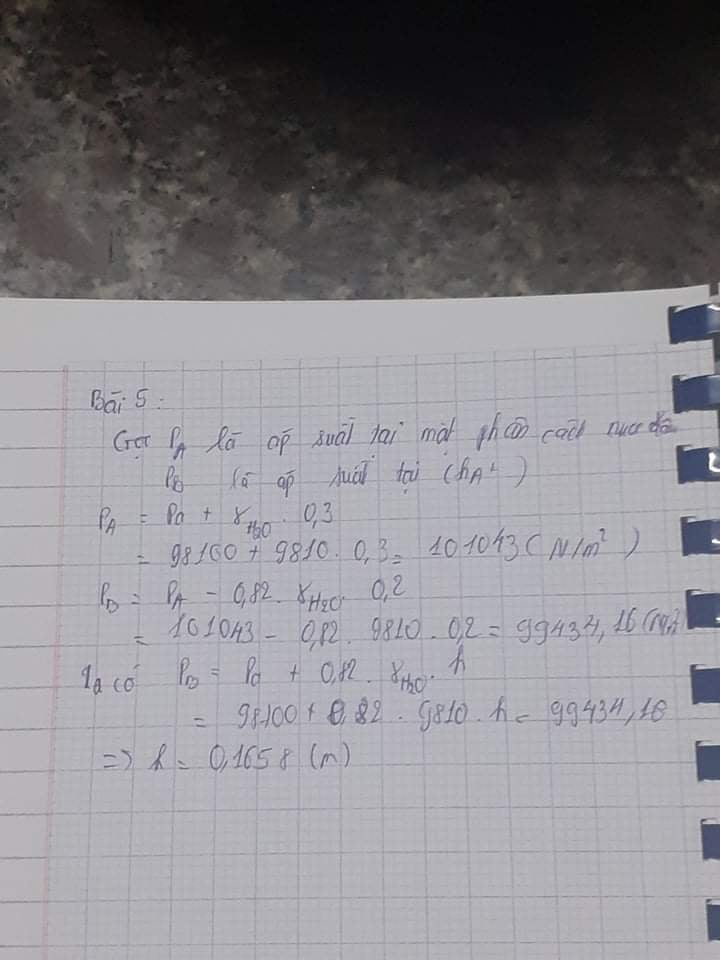 Bài 5:
Gọi P_A là áp suất tại mặt phân cách nước
P_B là áp suất tại
P_A = Pa + γ_H2O . 0,3
= 98100 + 9810 . 0,3 = 101043 (N/m²)
P_B = P_A - 0,82 . γ_H2O . 0,2
= 101043 - 0,82 . 9810 . 0,2 = 99434,16
Ta có P_B = Pa + 0,82 . γ_H2O . h
= 98100 + 0,82 . 9810 . h = 99434,16
=> h = 0,1658 (m)